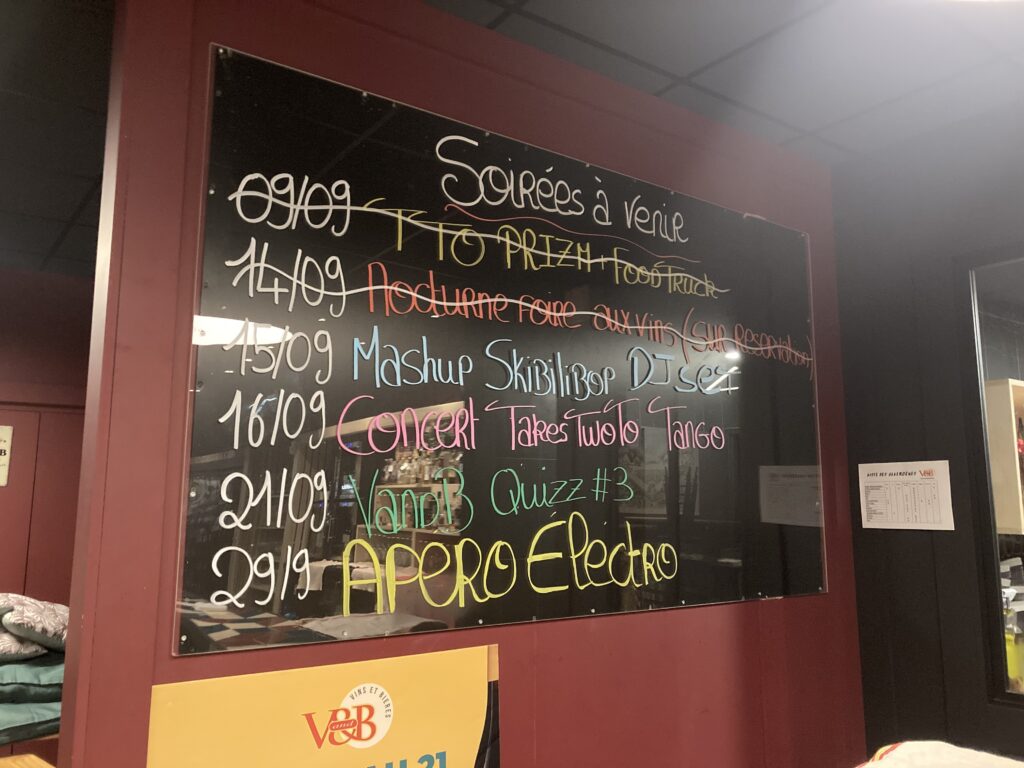 Soirées à venir
09/09 TTO PRIZM + FOOD TRUCK
14/09 Nocturne foire aux vins (sur reservation)
15/09 Mashup SkiBiliBop DJ set
16/09 Concert Takes Two To Tango
21/09 VandB Quizz #3
29/9 APERO Electro
V&B
VINS ET BIÈRES
21
LISTE DES ALLERGÈNES V&B